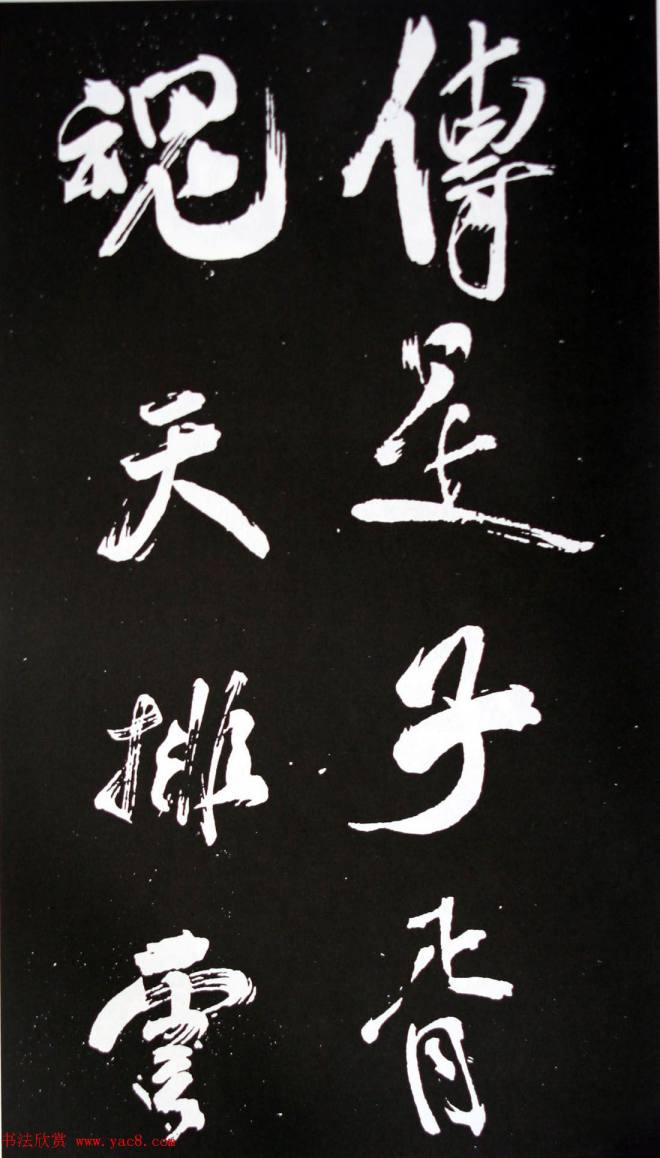 傳是子胥
魂天排雲
书法欣赏 www.yac8.com